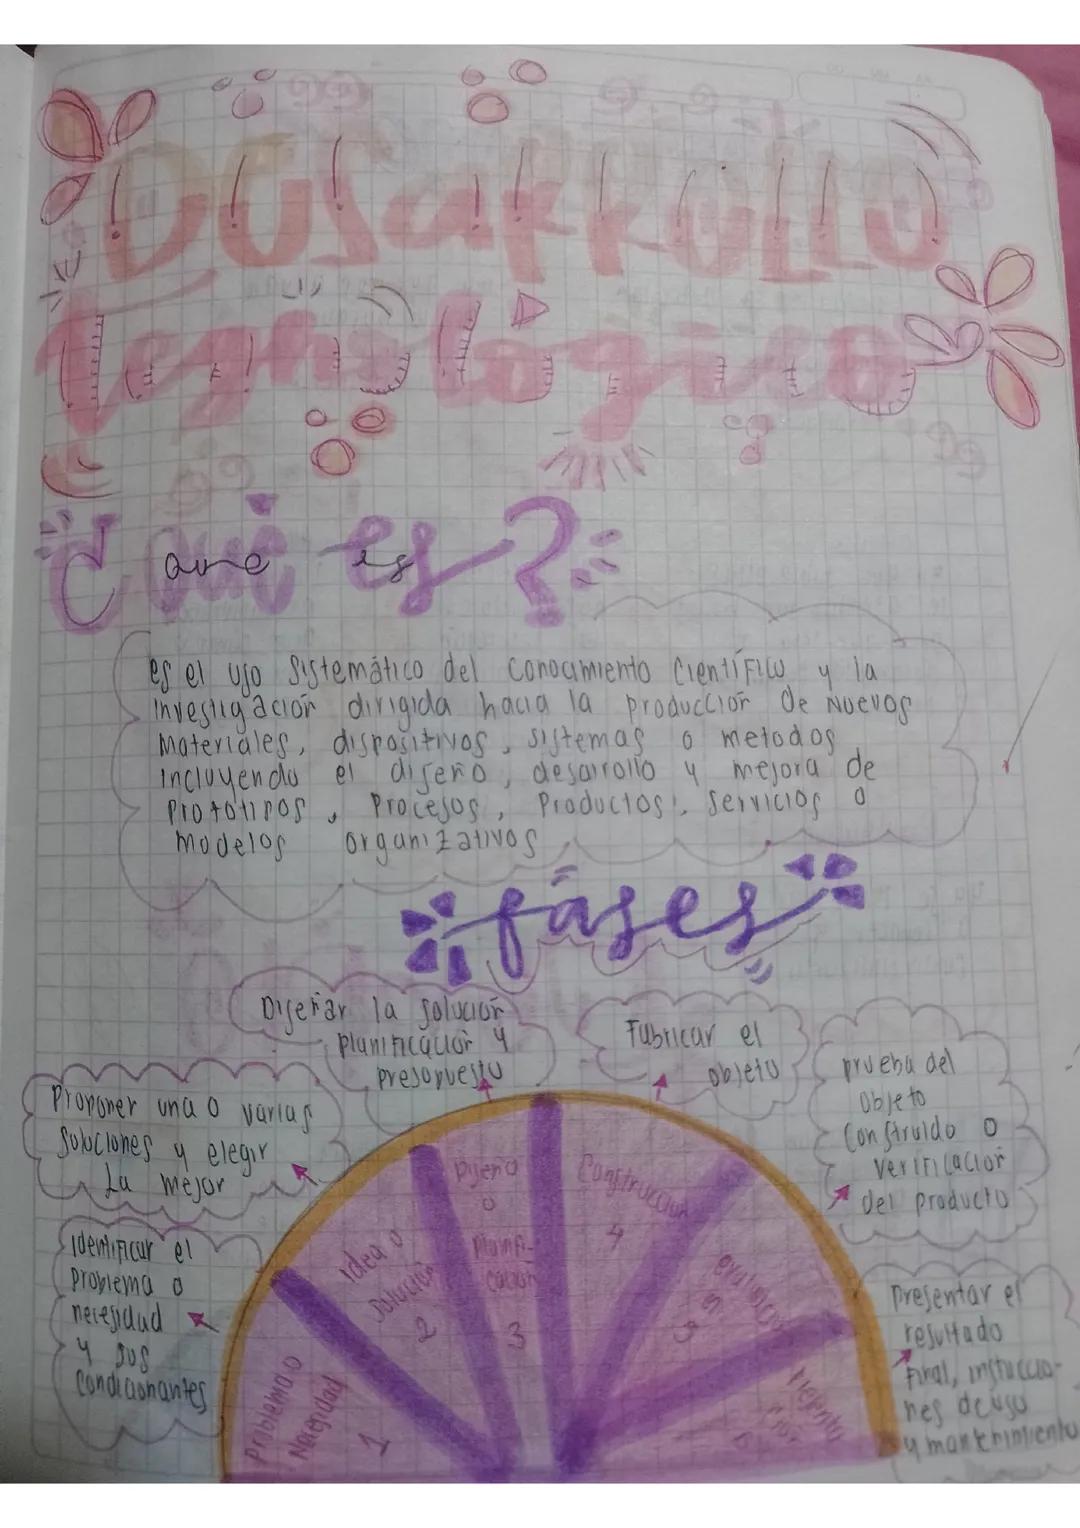 Desarrollo
tecnológico
¿Qué es?
que es
es el uso sistemático del conocimiento científico y la
investigación dirigida hacia la producción de Nuevos
Materiales, dispositivos, sistemas o metodos
incluyendo el diseño, desarrollo y mejora de
Prototipos, Procesos, Productos, servicios o
modelos organizativos
fases
Diseñar la solución
planificación y
presupuesto
Fabricar el
objeto
prueba del
objeto
construido o
verificación
del producto
Proponer una o varias
soluciones y elegir
La mejor
identificar el
problema o
necesidad
y sus
condicionantes
presentar el
resultado
final, instruccio-
nes de uso
y mantenimiento
problema o
Necesidad
1
idea o
solución
2
Diseño
o
planifi-
cación
3
Construcción
4
evaluación
5